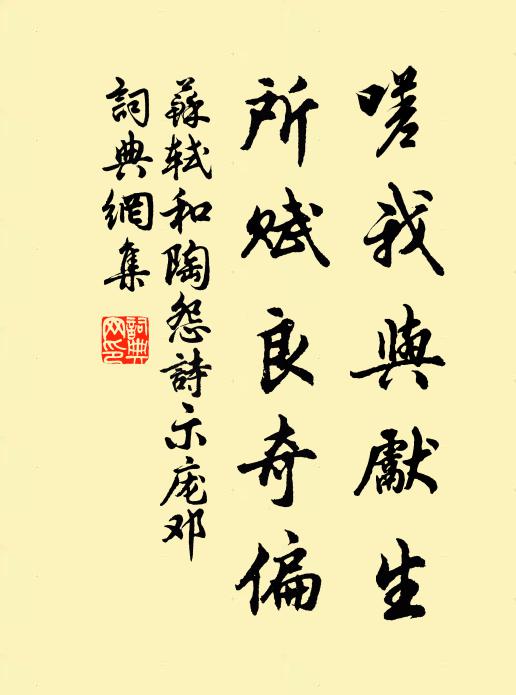 嗟我與獻生
所赋良奇偏
蘇軾和陶怨詩示庞邓
詞典網集
詞典网印